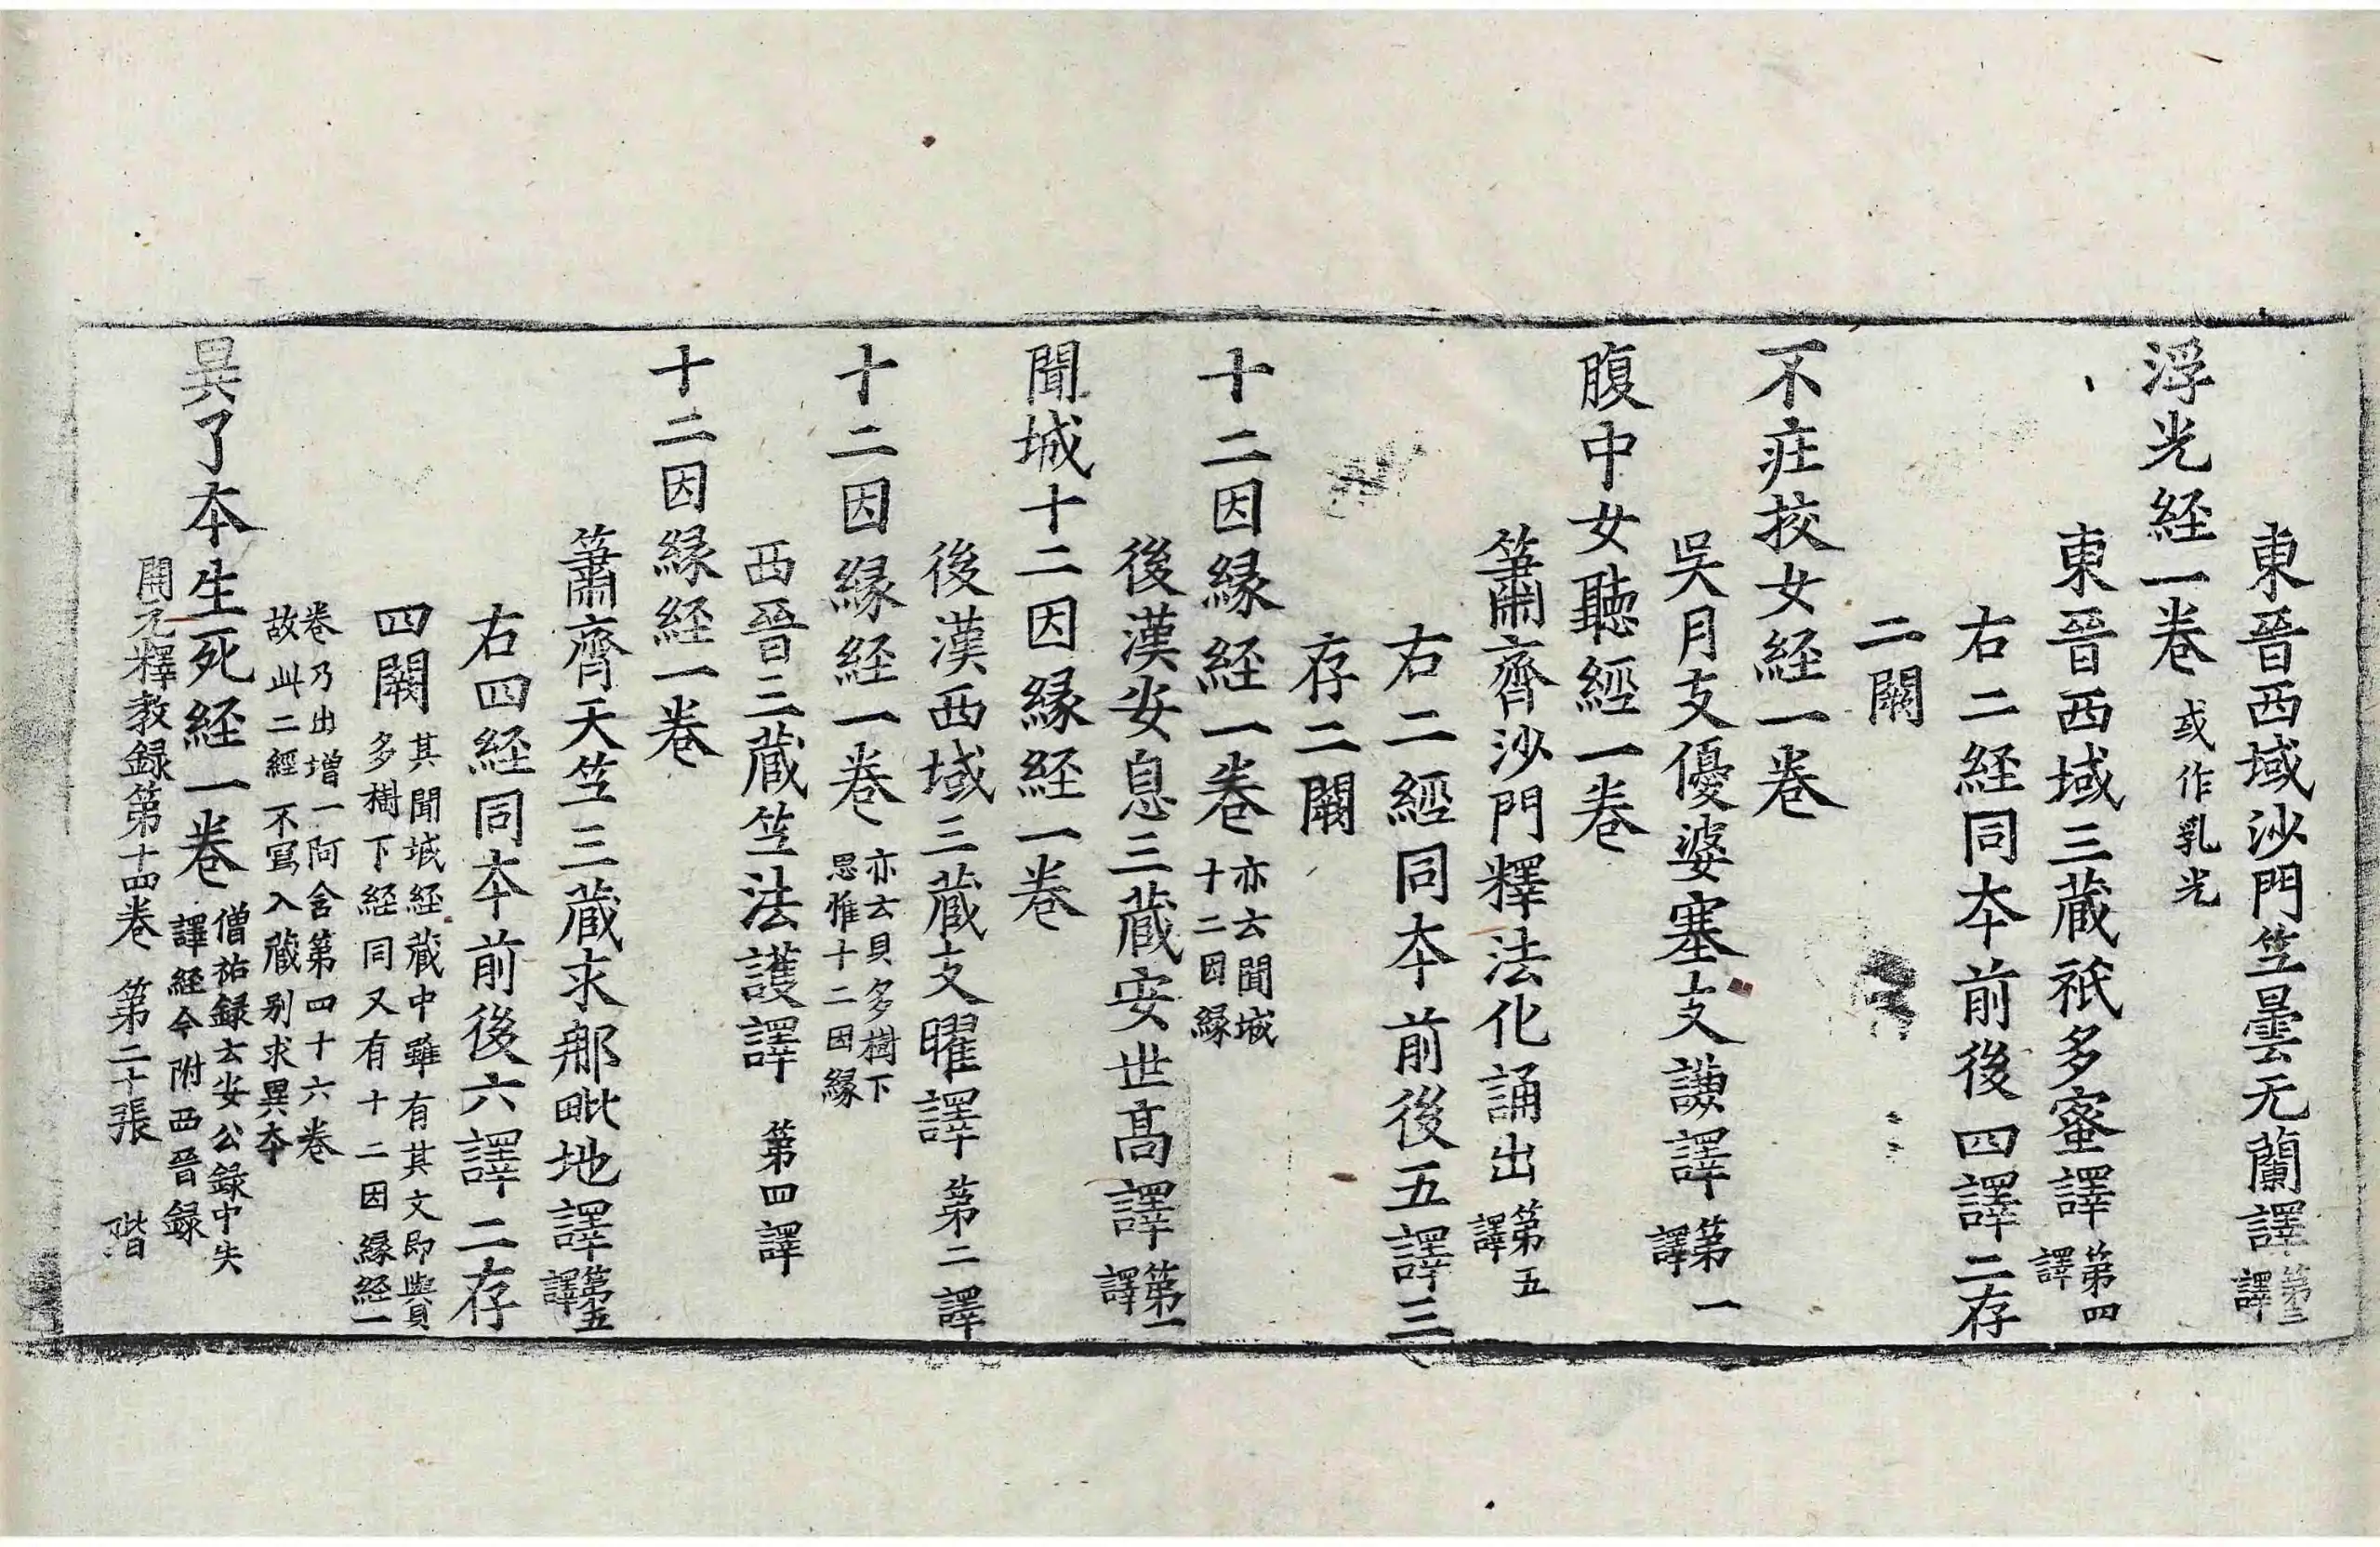 東晉西域沙門笁曇无蘭譯第三譯
浮光経一卷或作乳光
東晉西域三藏祇多蜜譯第四譯
右二経同夲前後四譯二存
二闕
不庄挍女経一卷
吳月支優婆塞支謙譯第一譯
腹中女聽經一卷
簫齊沙門釋法化誦出第五譯
右二經同夲前後五譯三
存二闕
十二因縁経一卷亦云聞城十二因縁
後漢安息三藏安世髙譯第一譯
聞城十二因縁経一卷
後漢西域三藏支曜譯第二譯
十二因縁経一卷亦云貝多樹下思惟十二因縁
西晉三藏笁法護譯第四譯
十二因縁経一卷
簫齊天笁三藏求那毗地譯第五譯
右四経同夲前後六譯二存
四闕其聞城経藏中雖有其文即與貝多樹下経同又有十二因縁経一
卷乃出增一阿含第四十六卷故此二經不寫入藏别求異夲
異了夲生死経一卷僧祐録云安公録中失譯経今附西晉録
開元釋教録第十四卷 第二十張 階